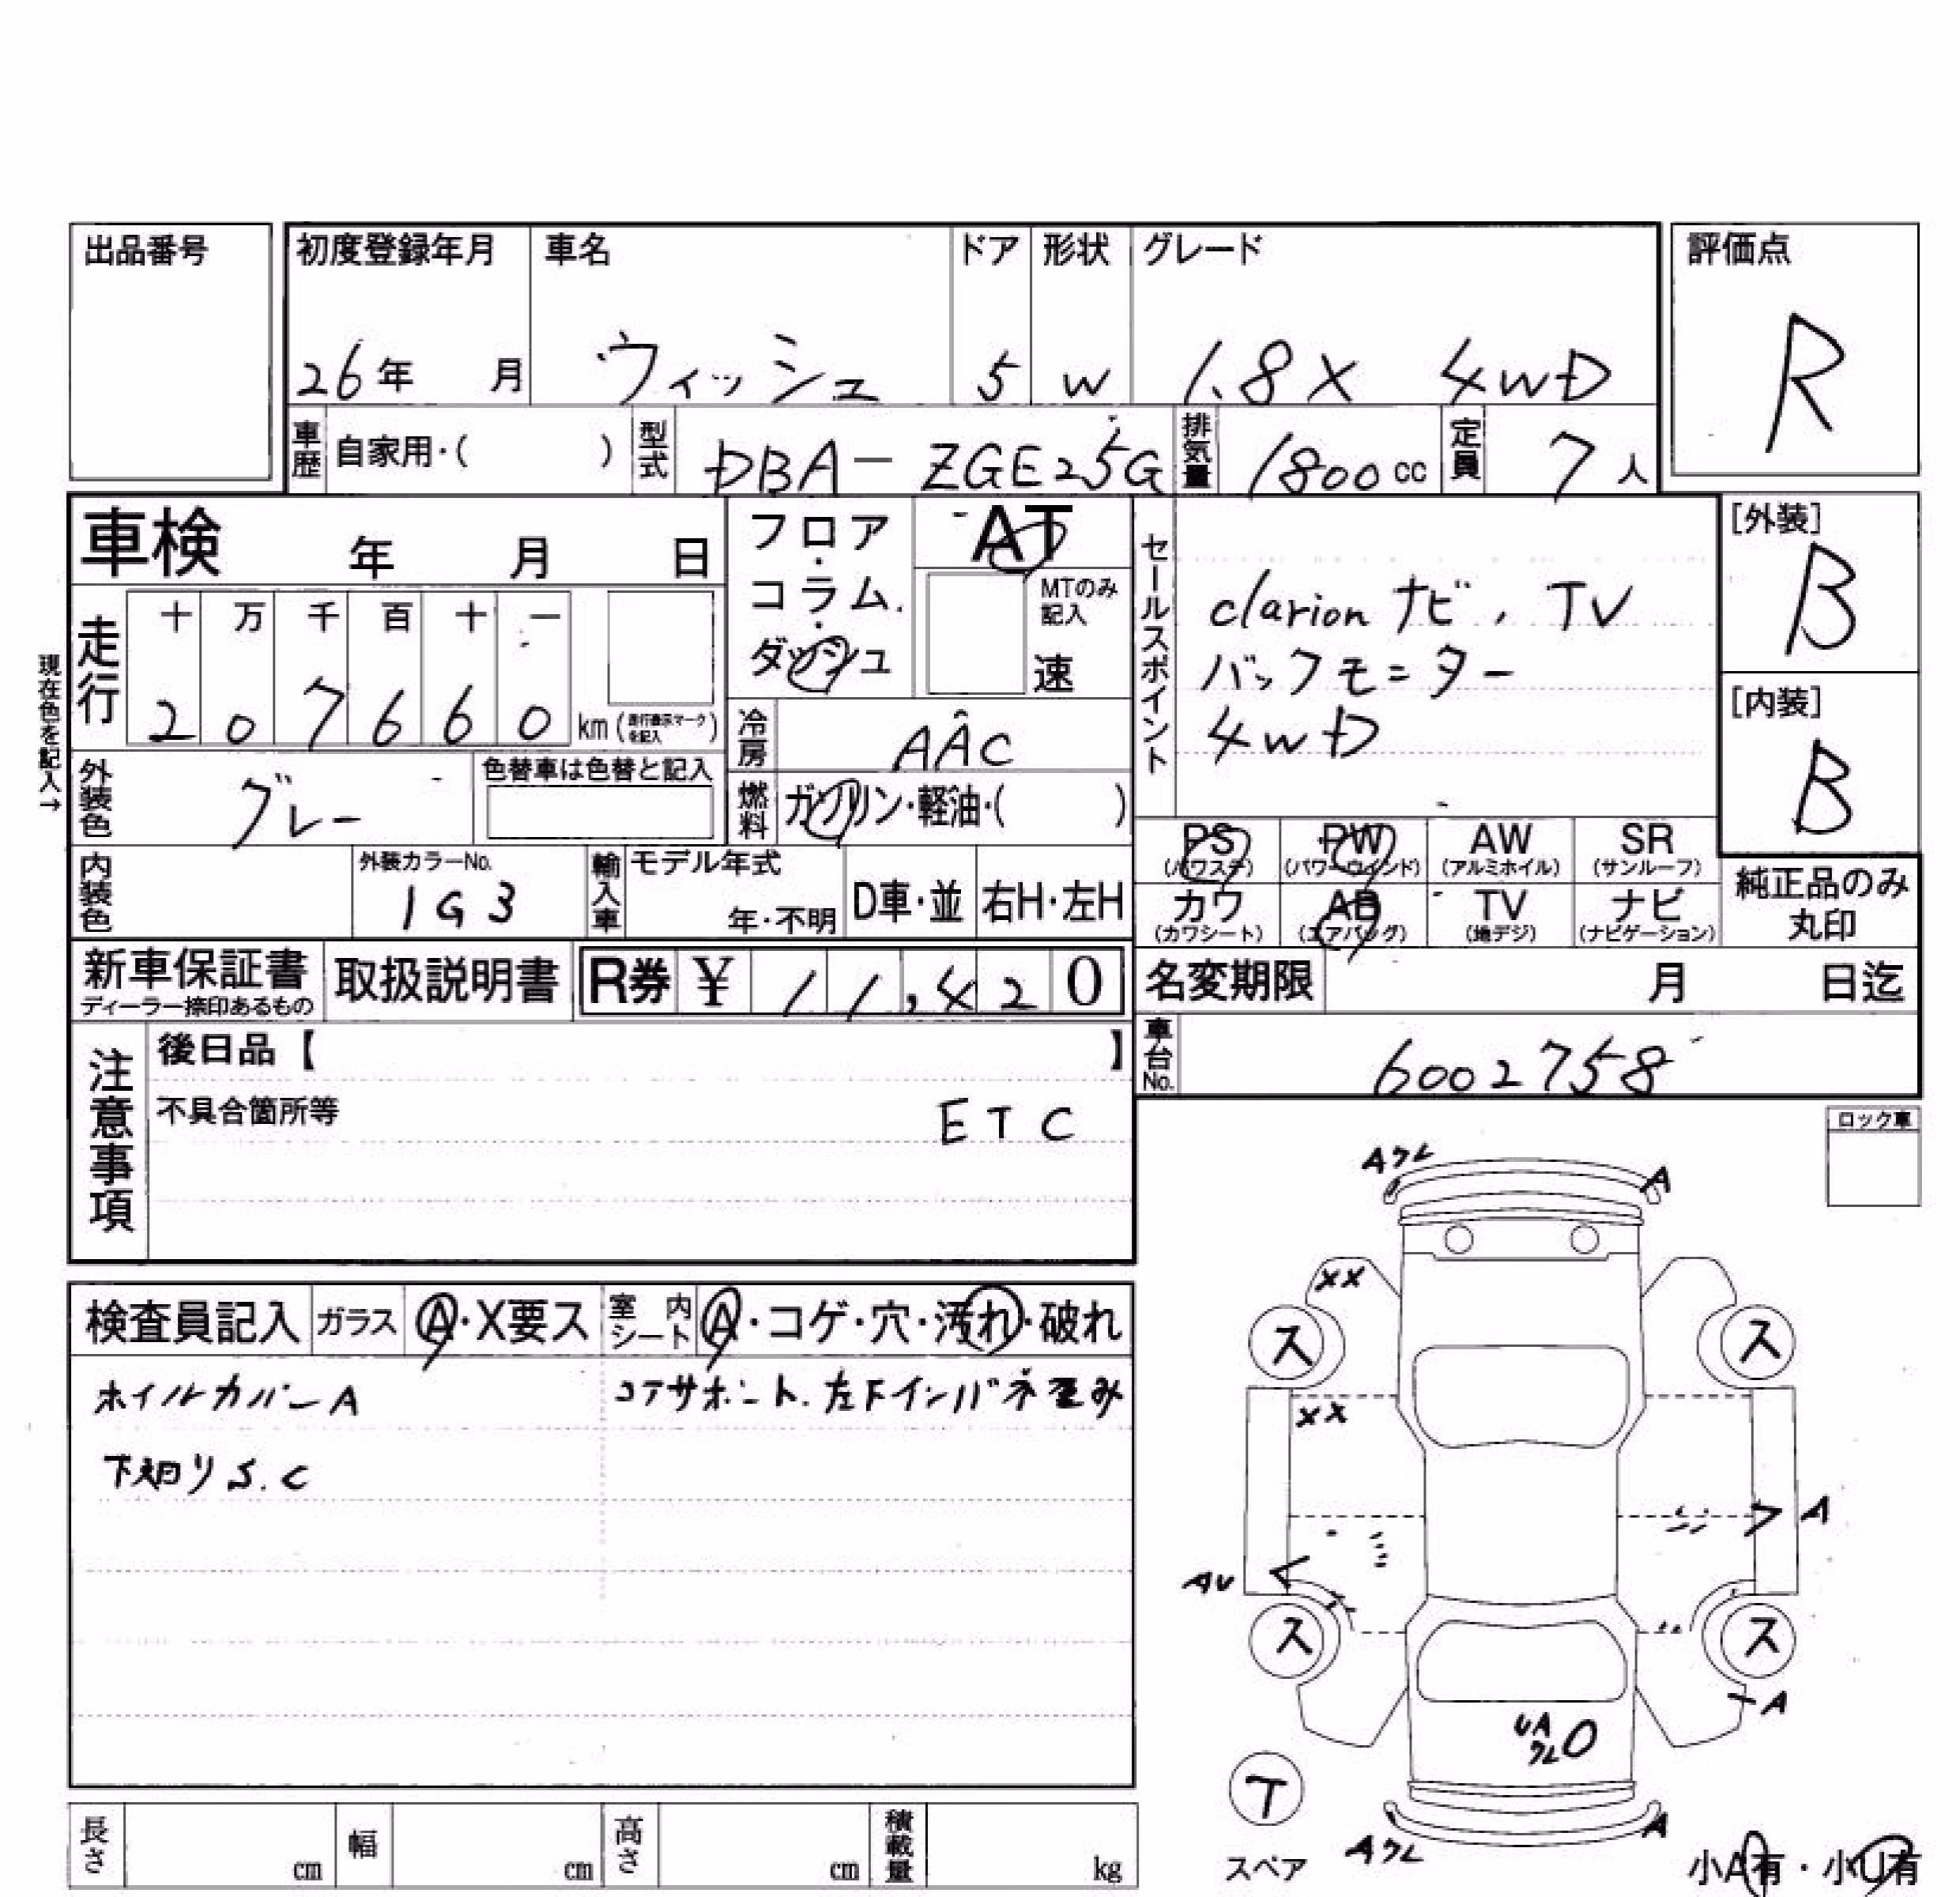 出品番号
初度登録年月 車名 ドア 形状 グレード 評価点
26年 月 ウィッシュ 5 W 1.8X 4WD R
車歴 自家用・( ) 型式 DBA-ZGE25G 排気量 1800cc 定員 7人
車検 年 月 日
フロア・コラム・ダッシュ AT
MTのみ記入
速
セールスポイント
clarion ナビ, TV
バックモニター
4WD
[外装]
B
[内装]
B
現在色を記入→
走行 十 万 千 百 十 一
2 0 7 6 6 0 km (走行表示マークを記入)
冷房 AAC
外装色 グレー 色替車は色替と記入
燃料 ガソリン・軽油・( )
PS (パワステ) PW (パワーウィンド) AW (アルミホイル) SR (サンルーフ)
カワ (カワシート) AB (エアバッグ) TV (地デジ) ナビ (ナビゲーション)
純正品のみ丸印
内装色 外装カラーNo. 1G3 輸入車 モデル年式 年・不明 D車・並 右H・左H
新車保証書 ディーラー捺印あるもの 取扱説明書 R券 ¥ 11,420
名変期限 月 日迄
車台No. 6002758
注意事項
後日品【 】
不具合箇所等 ETC
ロック車
検査員記入 ガラス A・X要ス 室内シート A・コゲ・穴・汚れ・破れ
ホイルカバーA コアサポート.左下インパネ歪み
下廻りS.C
Aクレ A
XX
ス ス
XX
A
AU
ス ス
A
UA
クレ
T
スペア
Aクレ A
小A有・小U有
長さ cm 幅 cm 高さ cm 積載量 kg